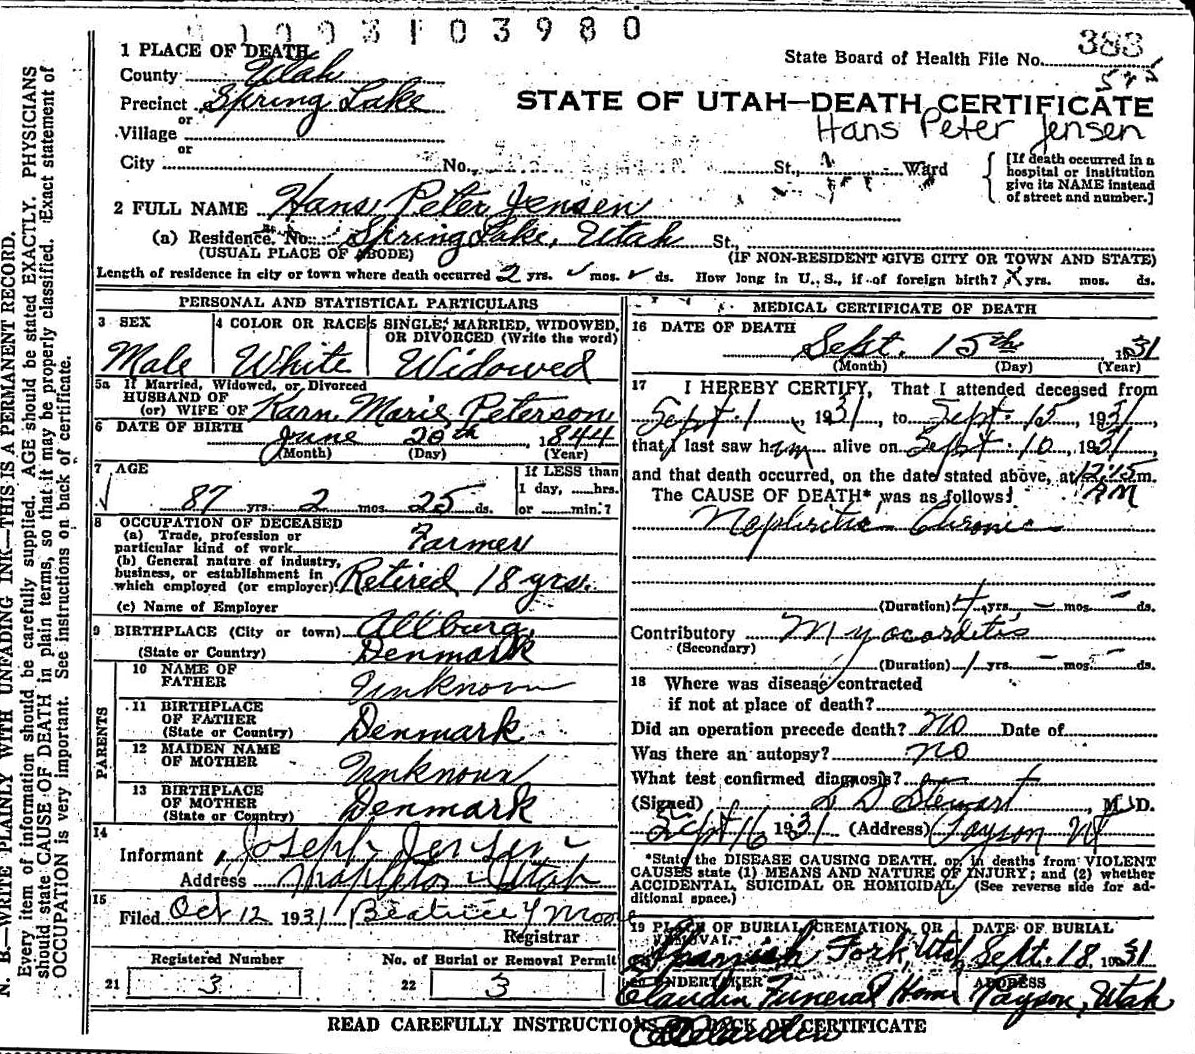 1003103980
1 PLACE OF DEATH
State Board of Health File No. 383
County Utah
Precinct Spring Lake
or
Village
or
City No. St., Ward
STATE OF UTAH—DEATH CERTIFICATE
Hans Peter Jensen
[If death occurred in a
hospital or institution
give its NAME instead
of street and number.]
2 FULL NAME Hans Peter Jensen
(a) Residence. No. Spring Lake, Utah St.,
(USUAL PLACE OF ABODE) (IF NON-RESIDENT GIVE CITY OR TOWN AND STATE)
Length of residence in city or town where death occurred 2 yrs. ✓ mos. ✓ ds. How long in U. S., if of foreign birth? x yrs. mos. ds.
PERSONAL AND STATISTICAL PARTICULARS
3 SEX
Male
4 COLOR OR RACE
White
5 SINGLE, MARRIED, WIDOWED,
OR DIVORCED (Write the word)
Widowed
5a If Married, Widowed, or Divorced
HUSBAND OF
(or) WIFE OF Karn Marie Peterson
6 DATE OF BIRTH June 20th, 1844
(Month) (Day) (Year)
7 AGE
87 yrs. 2 mos. 25 ds.
If LESS than
1 day, hrs.
or min.?
8 OCCUPATION OF DECEASED
(a) Trade, profession or
particular kind of work Farmer
(b) General nature of industry,
business, or establishment in
which employed (or employer) Retired 18 yrs.
(c) Name of Employer
9 BIRTHPLACE (City or town) Allburg,
(State or Country) Denmark
PARENTS
10 NAME OF
FATHER Unknown
11 BIRTHPLACE
OF FATHER
(State or Country) Denmark
12 MAIDEN NAME
OF MOTHER Unknown
13 BIRTHPLACE
OF MOTHER
(State or Country) Denmark
14
Informant Joseph Jensen
Address Mapleton Utah
15
Filed Oct 12 1931 Beatrice Y Moore
Registrar
Registered Number
21 3
No. of Burial or Removal Permit
22 3
MEDICAL CERTIFICATE OF DEATH
16 DATE OF DEATH
Sept. 15th 1931
(Month) (Day) (Year)
17 I HEREBY CERTIFY, That I attended deceased from
Sept. 1, 1931, to Sept. 15, 1931,
that I last saw him alive on Sept. 10, 1931,
and that death occurred, on the date stated above, at 12:15 m.
AM
The CAUSE OF DEATH* was as follows:
Nephritis Chronic
(Duration) 4 yrs. – mos. – ds.
Contributory Myocarditis
(Secondary)
(Duration) 1 yrs. – mos. – ds.
18 Where was disease contracted
if not at place of death?
Did an operation precede death? No Date of
Was there an autopsy? no
What test confirmed diagnosis?
(Signed) L D Stewart, M. D.
Sept 16 1931 (Address) Payson Ut
*State the DISEASE CAUSING DEATH, or, in deaths from VIOLENT
CAUSES state (1) MEANS AND NATURE OF INJURY; and (2) whether
ACCIDENTAL, SUICIDAL OR HOMICIDAL. (See reverse side for ad-
ditional space.)
19 PLACE OF BURIAL, CREMATION, OR
REMOVAL
Spanish Fork, Utah
DATE OF BURIAL
Sept. 18 1931
20 UNDERTAKER
Claudin Funeral Home
ADDRESS
Payson, Utah
READ CAREFULLY INSTRUCTIONS ON BACK OF CERTIFICATE
N. B.—WRITE PLAINLY WITH UNFADING INK—THIS IS A PERMANENT RECORD.
Every item of information should be carefully supplied. AGE should be stated EXACTLY. PHYSICIANS
should state CAUSE OF DEATH in plain terms, so that it may be properly classified. Exact statement of
OCCUPATION is very important. See instructions on back of certificate.